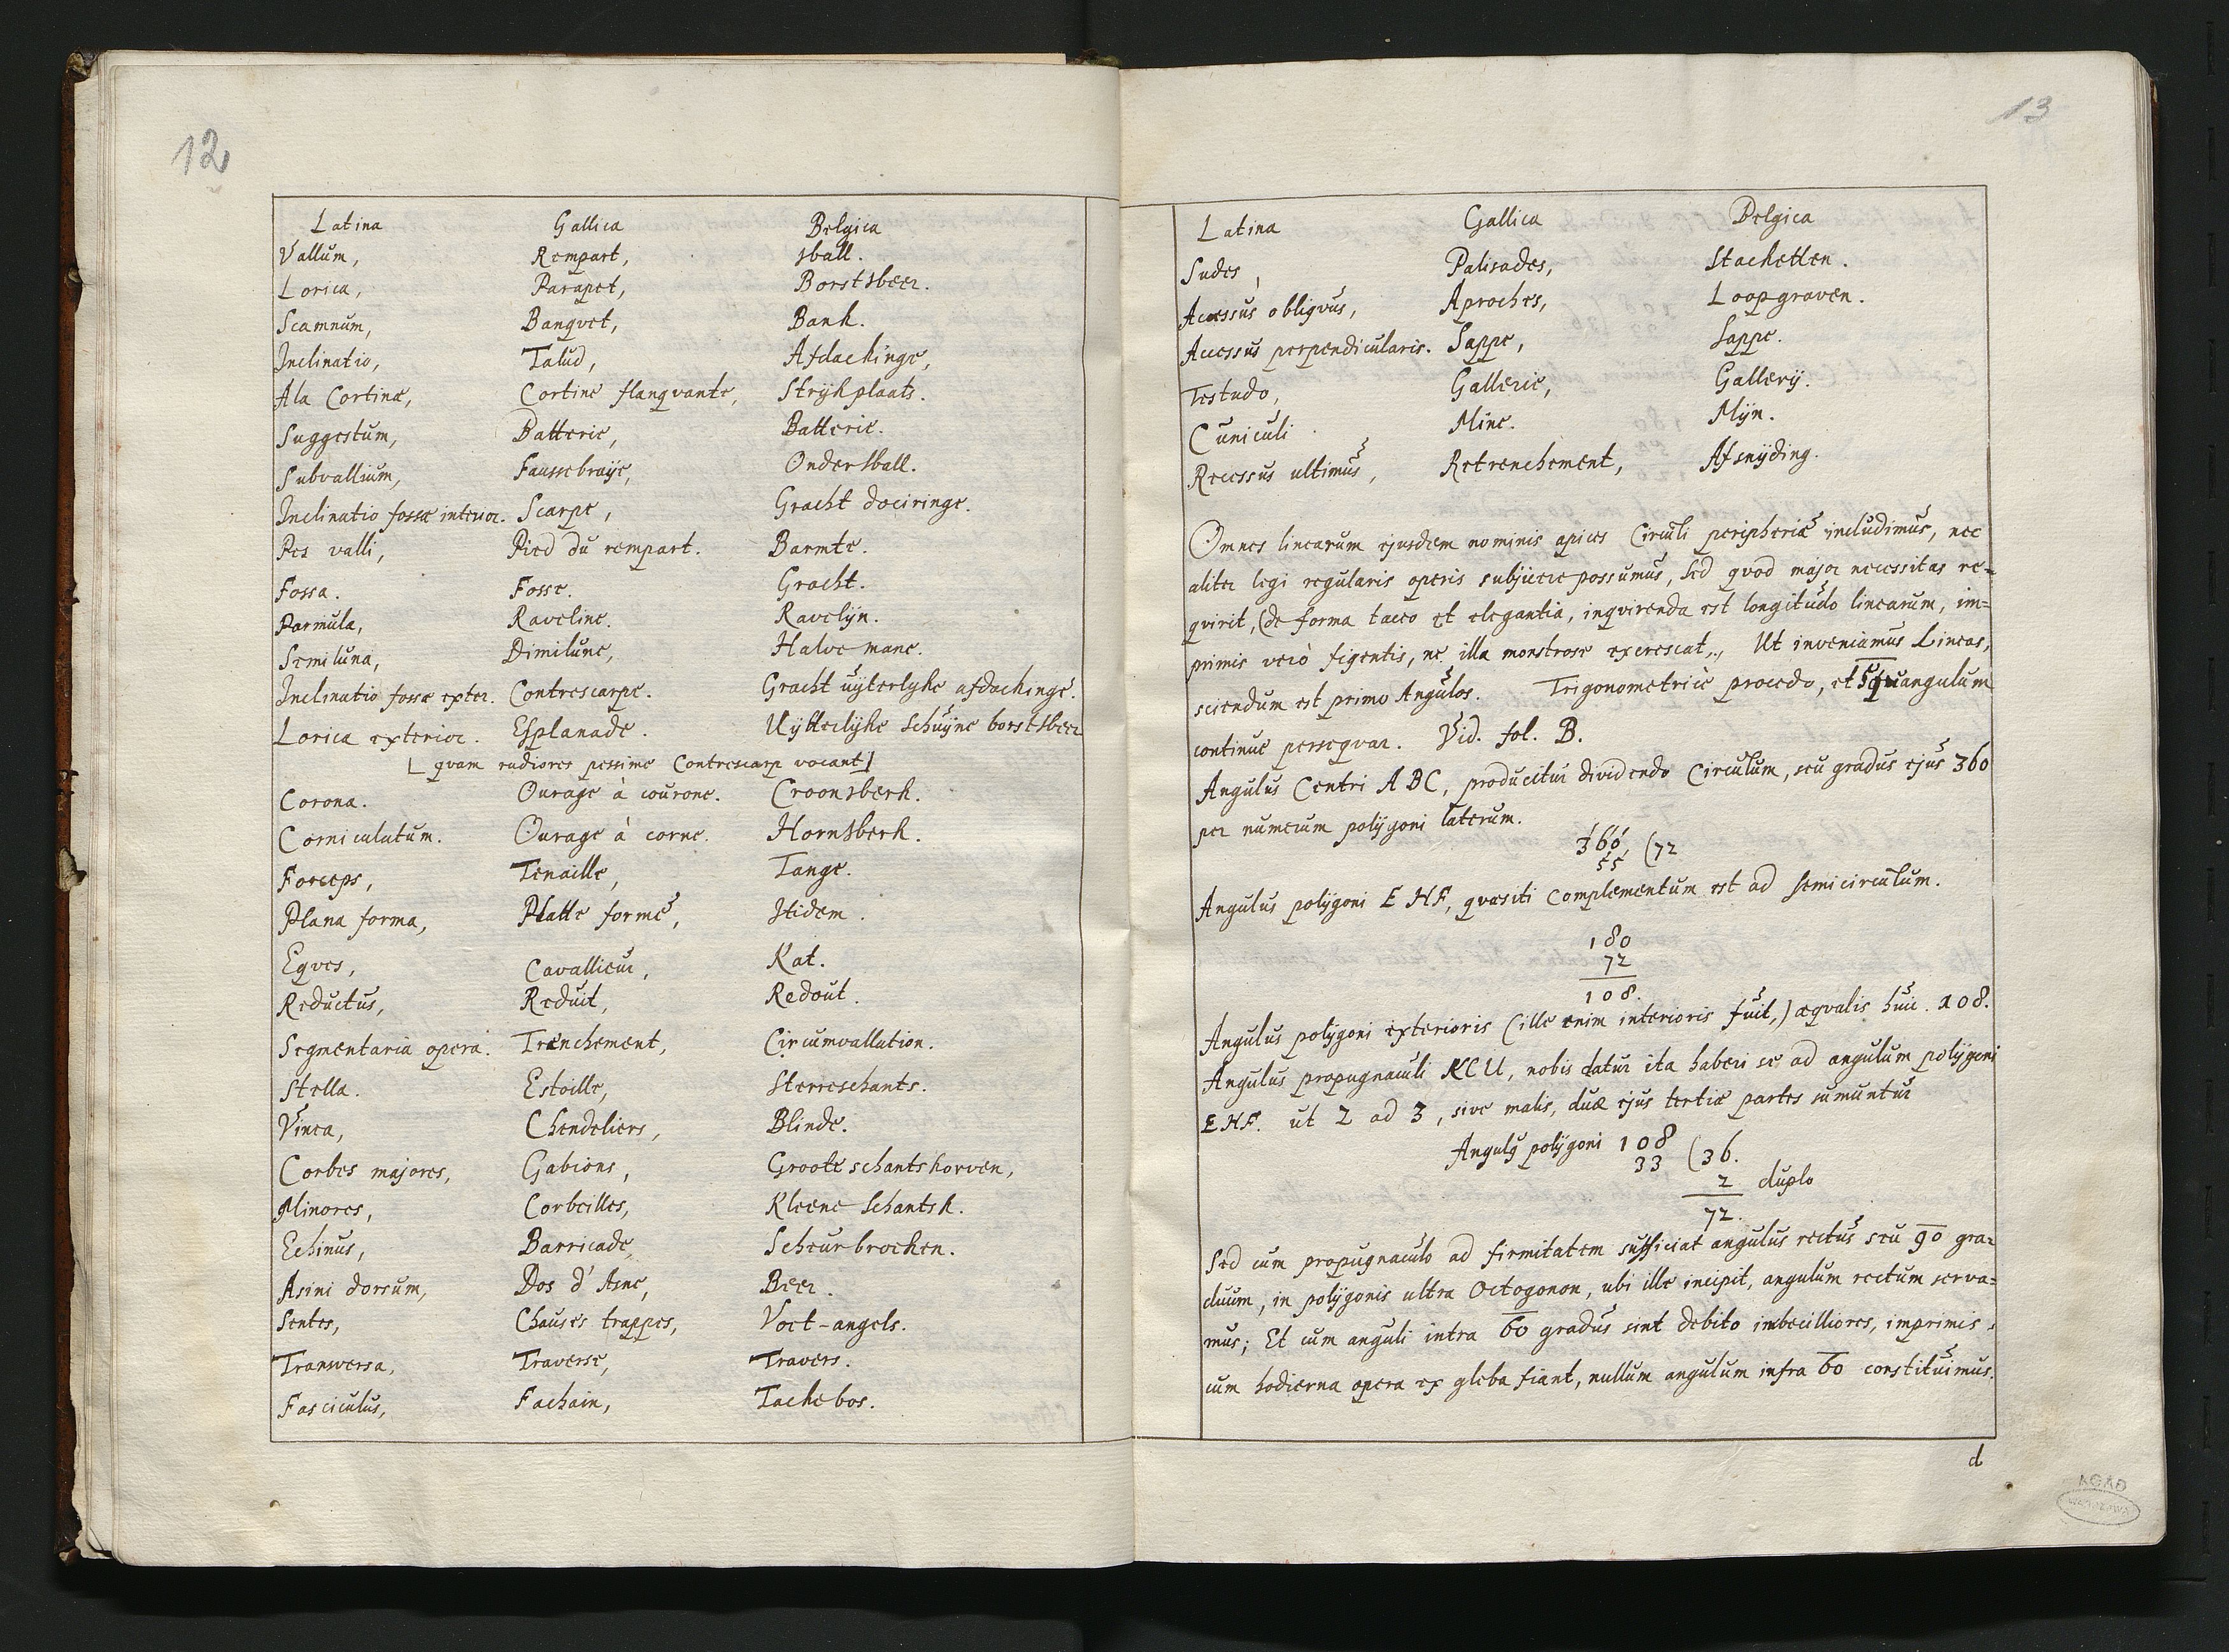 12
Latina Gallica Belgica
Vallum, Rempart, Wall.
Lorica, Parapet, Borstweer.
Scamnum, Banqvet, Bank.
Inclinatio, Talud, Afdachinge,
Ala Cortinæ, Cortine flanqvante, Strijkplaats.
Suggestum, Batterie, Batterie.
Subvallium, Faussebraÿe, Onderwall.
Inclinatio fossæ interior. Scarpe, Gracht dociringe.
Pes valli, Pied du rempart. Barmte.
Fossa. Fosse. Gracht.
Parmula, Raveline. Ravelÿn.
Semiluna, Dimilune, Halve mane.
Inclinatio fossæ exter. Contrescarpe. Gracht uÿterlyke afdachinge.
Lorica exterior. Esplanade. Uÿtterlijke Schuÿne borstweer
[qvam rudiores pessime Contrescarp vocant]
Corona. Ourage à courone. Croonwerk.
Corniculatum. Ourage à corne. Hornwerk.
Forceps, Tenaille, Tange.
Plana forma, Platte forme, Itidem.
Eqves, Cavallieur, Kat.
Reductus, Reduit, Redout.
Segmentaria opera. Trenchement, Circumvallation.
Stella. Estoille, Sterreschants.
Vinea, Chendeliers, Blinde.
Corbes majores, Gabions, Groote schantskorven,
Minores, Corbeilles, Kleene Schantsk.
Echinus, Barricade, Scheurbrocken.
Asini dorsum, Dos d'Asne, Beer.
Sentes, Chausés trappes, Voet-angels.
Transversa, Traverse, Travers.
Fasciculus, Fachain, Tackebos.
13
Latina Gallica Belgica
Sudes, Palisades, Stacketten.
Accessus obliqvus, Aproches, Loopgraven.
Accessus perpendicularis. Sappe, Sappe.
Testudo, Gallerie, Gallerÿ.
Cuniculi Mine. Mÿn.
Recessus ultimus, Retrenchement, Afsnÿding.
Omnes linearum ejusdem nominis apices Circuli peripheriæ includimus, nec
aliter legi regularis operis subjicere possumus, Sed qvod major necessitas re=
qvirit, (de forma taceo et elegantia, inqvirenda est longitudo linearum, im=
primis verò figentis, ne illa monstrose excrescat,, Ut inveniamus Lineas,
sciendum est primo Angulos. Trigonometricè procedo, et 5quangulum
continue perseqvar. Vid. fol. B.
Angulus Centri ABC, producitur dividendo Circulum, seu gradus ejus 360
per numerum polÿgoni laterum.
360 (72
55
Angulus polÿgoni EHF, qvæsiti Complementum est ad Semicirculum.
180
72
108.
Angulus polÿgoni exterioris (ille enim interioris fuit,) æqvalis huic. 108.
Angulus propugnaculi KCU, nobis datur ita haberi se ad angulum polÿgoni
EHF. ut 2 ad 3, sive malis, duæ ejus tertiæ partes sumuntur
Anguls polÿgoni 108 (36.
33
2 duplo
72.
Sed cum propugnaculo ad firmitatem sufficiat angulus rectus seu 90 gra=
duum, in polÿgonis ultra Octogonon, ubi ille incipit, angulum rectum serva=
mus; Et cum anguli intra 60 gradus sint debito imbecilliores, imprimis
cum hodierna opera ex gleba fiant, nullum angulum infra 60 constituimus.
d
AGAD